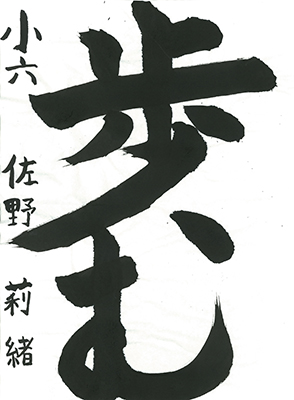 歩む
小六 佐野 莉緒